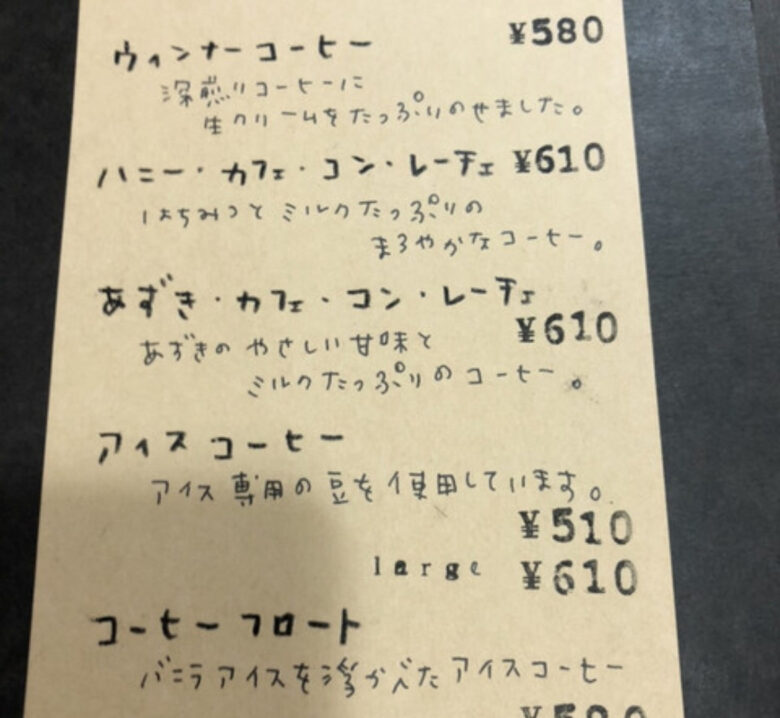 ウィンナーコーヒー ¥580
深煎りコーヒーに
生クリームをたっぷりのせました。
ハニー・カフェ・コン・レーチェ ¥610
はちみつとミルクたっぷりの
まろやかなコーヒー。
あずき・カフェ・コン・レーチェ
¥610
あずきのやさしい甘味と
ミルクたっぷりのコーヒー。
アイスコーヒー
アイス専用の豆を使用しています。
¥510
large ¥610
コーヒーフロート
バニラアイスを浮かべたアイスコーヒー